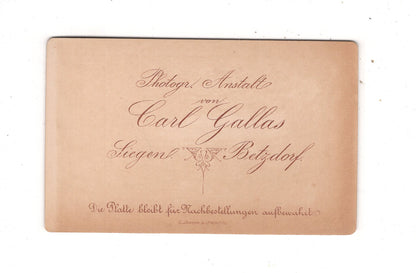 Photogr. Anstalt
von
Carl Gallas
Siegen. Betzdorf.
Die Platte bleibt für Nachbestellungen aufbewahrt